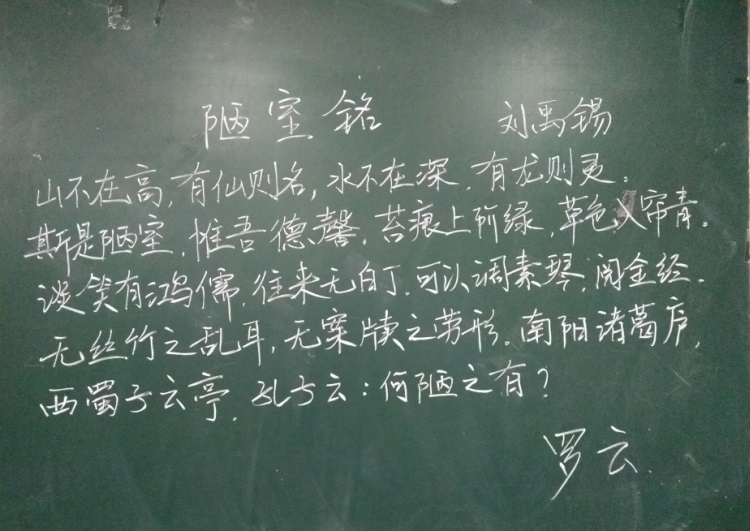 陋室铭 刘禹锡
山不在高,有仙则名,水不在深,有龙则灵。
斯是陋室,惟吾德馨,苔痕上阶绿,草色入帘青。
谈笑有鸿儒,往来无白丁,可以调素琴,阅金经.
无丝竹之乱耳,无案牍之劳形.南阳诸葛庐,
西蜀子云亭.孔子云:何陋之有?
罗云